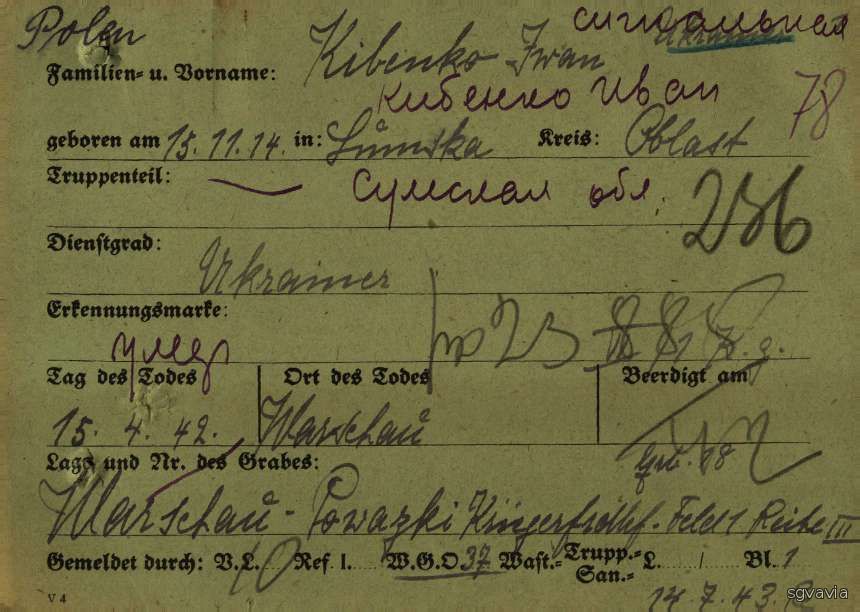 Polen сигнальная
Familien- u. Vorname: Kibenko Iwan
Кибенко Иван 78
geboren am 15.11.14. in: Sumska Kreis: Oblast
Truppenteil: Сумская обл. 236
Dienstgrad:
Ukrainer
Erkennungsmarke:
умер
Tag des Todes Ort des Todes Beerdigt am
15. 4. 42. Warschau
Lage und Nr. des Grabes: Grb. 18
Warschau - Powazki Kriegerfrdhf. Feld 1 Reihe III
Gemeldet durch: V.L. Ref. 1. W.G.O 37 Wast.= Trupp.= San.= L. / Bl. 1
V 4 14.7.43.
sgvavia